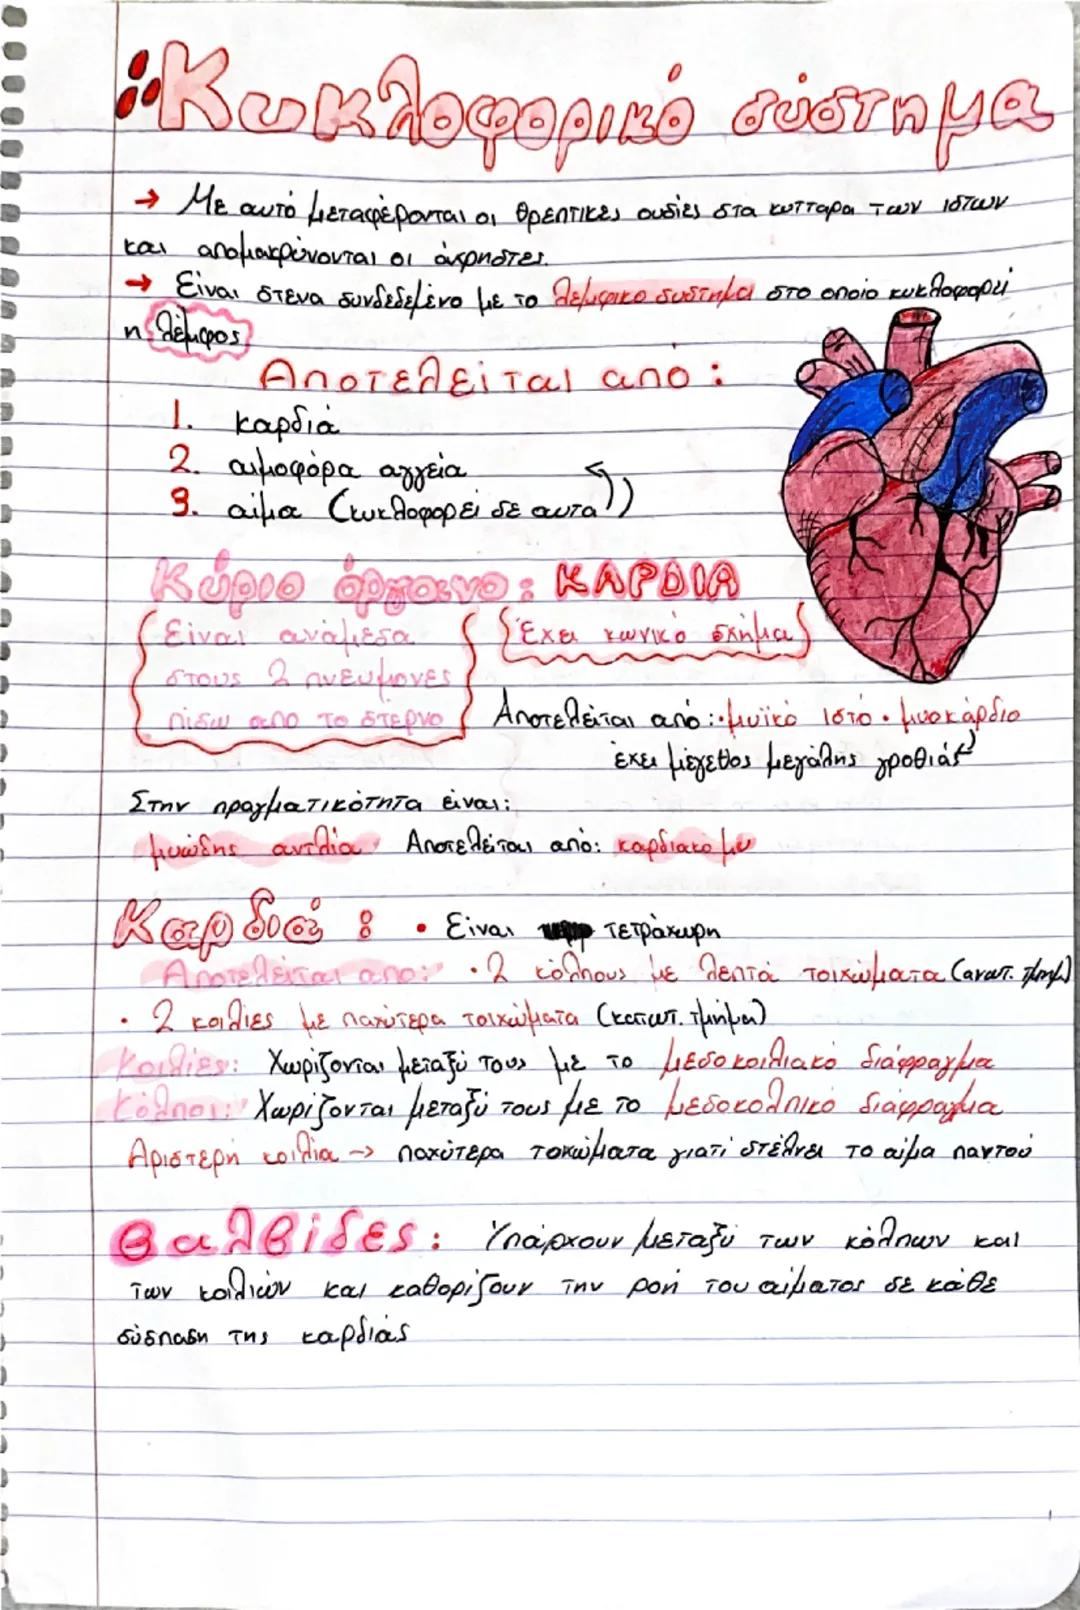 Κυκλοφορικό σύστημα
→ Με αυτό μεταφέρονται οι θρεπτικές ουσίες στα κυτταρα των ιστων
και απομακρύνονται οι άχρηστες.
→ Είναι στενα συνδεδεμένο με το λεμφικο συστημα στο οποίο κυκλοφορεί
η λέμφος
Αποτελείται από:
1. καρδιά
2. αιμοφόρα αγγεία
3. αίμα (κυκλοφορεί σε αυτα)
Κύριο όργανο: ΚΑΡΔΙΑ
Είναι ανάμεσα
στους 2 πνευμονες
πισω απο το στερνο
Έχει κωνικό σχήμα
Αποτελείται από: • μυϊκό ιστό • μυοκάρδιο
έχει μέγεθος μεγάλης γροθιάς
Στην πραγματικότητα είναι:
μυώδης αντλία Αποτελείται από: καρδιακό μυ
Καρδιά: • Είναι τετράχωρη
Αποτελείται απο: • 2 κόλπους με λεπτά τοιχώματα (ανωτ. τμήμ)
• 2 κοιλίες με παχύτερα τοιχώματα (κατωτ. τμήμα)
Κοιλίες: Χωρίζονται μεταξύ τους με το μεσοκοιλιακό διάφραγμα
Κόλποι: Χωρίζονται μεταξύ τους με το μεσοκολπικό διάφραγμα
Αριστερή κοιλία → παχύτερα τοιχώματα γιατί στέλνει το αίμα παντού
Βαλβίδες: Υπάρχουν μεταξύ των κόλπων και
των κοιλιών και καθορίζουν την ροή του αίματος σε κάθε
σύσπαση της καρδιάς